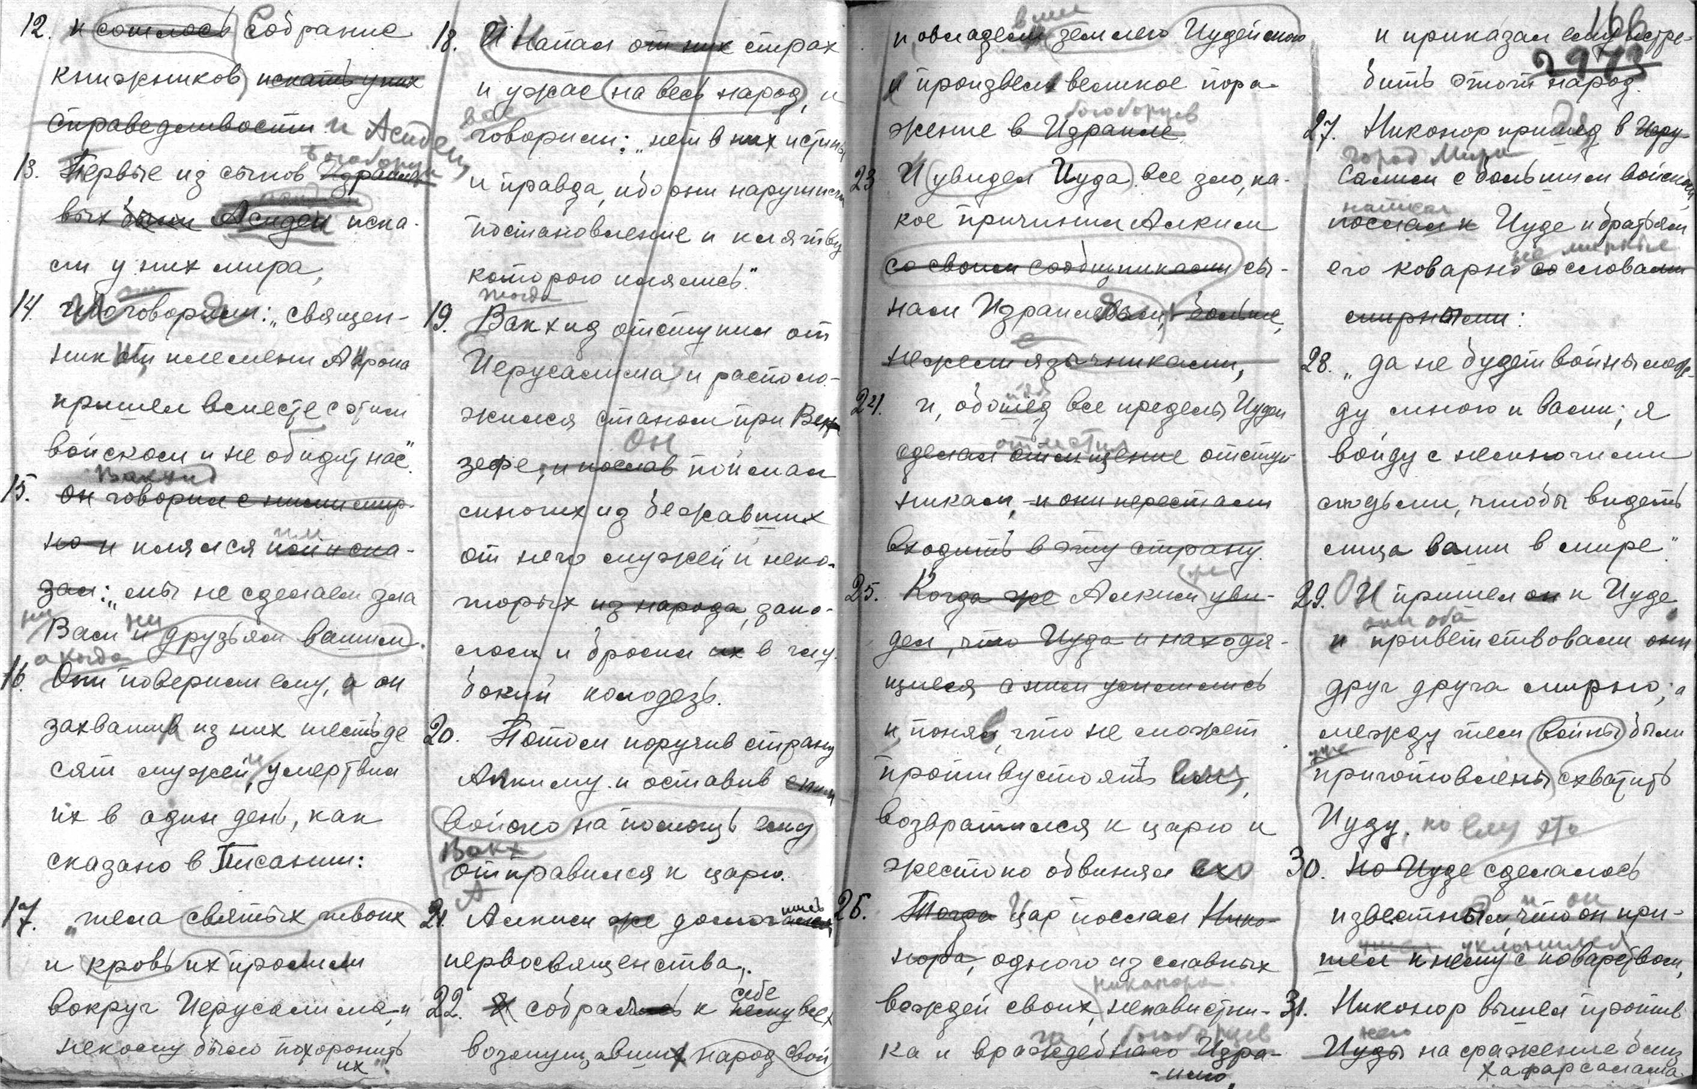 12. и сошлось Собрание
книжников искать у них
справедливости и Асидеи
13. Первые из сынов Израиле
вых были Асидеи иска-
ли у них мира,
14. говорили: „священ-
ник от племени Аарона
пришел вместе с этим
войском и не обидит нас“.
Вакхид
15. Он говорил с ними мир-
но и клялся им и ска-
зал: „мы не сделаем зла
Вам ни друзьям вашим“.
а когда
16. Они поверили ему, а он
захватив из них шестьде
сят мужей, умертвил
их в один день, как
сказано в Писании:
17. „тела святых твоих
и кровь их пролили
вокруг Иерусалима, и
некому было похоронить
их“
18. И напал от них страх
и ужас на весь народ, и
все
говорили: „нет в них истины
и правды, ибо они нарушили
постановление и клятву
которою клялись.“
тогда
19. Вакхид отступил от
Иерусалима и располо-
жился станом при Вед
он
зефе, и послав поймал
многих из бежавших
от него мужей и неко-
торых из народа, зако-
лол и бросил их в глу
бокий колодезь.
20. Потом поручив страну
Алкиму и оставив с ним
войско на помощь ему
Вакх
отправился к царю.
21. Алким же домогался
первосвященства.
себе
22. И собрались к нему все
возмущавшие народ свой
и овладели землею Иудейскою
и произвели великое пора-
богоборцев
жение в Израиле.
23 И увидел Иуда все зло, ка-
кое причинил Алким
со своими сообщниками сы-
нам Израилевым, больше,
нежели язычниками,
24. и, обошед все пределы Иудеи
отмстил
сделал отмщение отступ
никам, и они перестали
входить в эту страну.
25. Когда же Алким уви-
дел, что Иуда и находя-
щиеся с ним усилились
и понял, что не может
противустоять им,
возвратился к царю и
жестоко обвинял его
26. Тогда Царь послал Ника-
нора, одного из славных
никанора
вождей своих, ненавистни-
богоборцев
ка и враждебного Изра-
илю,
166
2973
и приказал ему истре-
бить этот народ.
27. Никонор пришед в Иеру
город Мира
салим с большим войском
послал к Иуде и братьям
его коварно со словами
мирными:
28. „да не будет войны меж-
ду мною и вами; я
войду с немногими
людьми, чтобы видеть
лица ваши в мире“.
29. И пришел он к Иуде
они оба
и приветствовали они
друг друга мирно; а
между тем войны были
уже
приготовлены схватить
Иуду. но ему это
30. Но Иуде сделалось
известным, что он при-
уклонился
шел к нему с коварством,
31. Никонор вышел против
него
Иуды на сражение близ
Хафарсалама